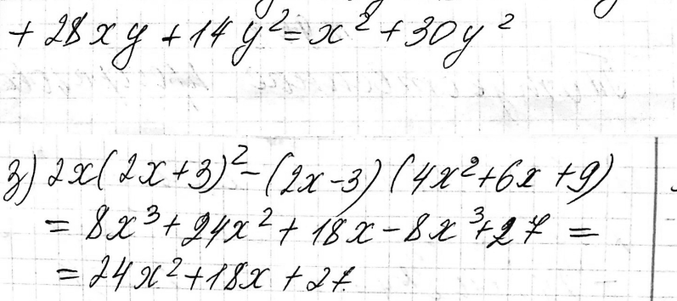 + 28xy + 14y² = x² + 30y²
з) 2x(2x+3)² - (2x-3)(4x²+6x+9)
= 8x³ + 24x² + 18x - 8x³ + 27 =
= 24x² + 18x + 27